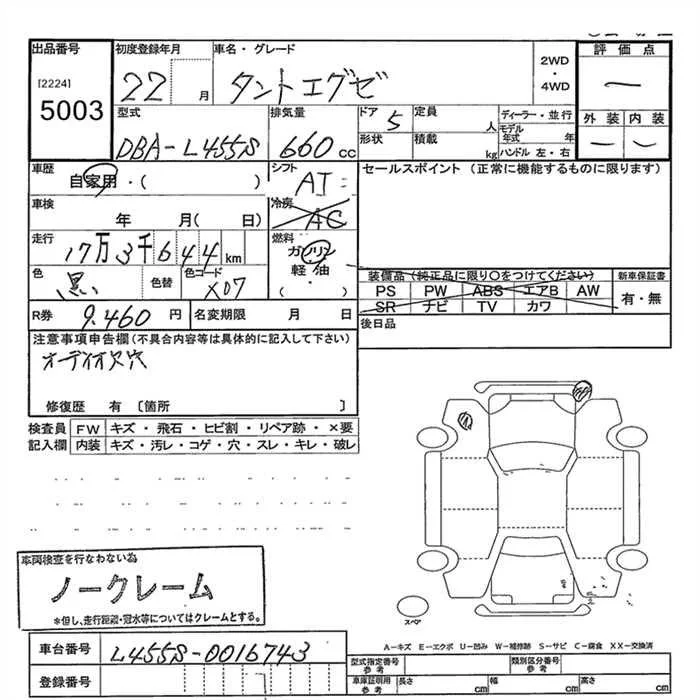 出品番号
[2224]
5003
初度登録年月
22 月
車名・グレード
タントエグゼ
2WD
・
4WD
評価点
—
外装 内装
— —
型式
DBA-L455S
排気量
660 cc
ドア 5
定員 人
形状
積載 kg
ディーラー・並行
モデル年式 年
ハンドル 左・右
車歴
自家用・( )
シフト
AT
セールスポイント (正常に機能するものに限ります)
車検
年 月( 日)
冷房
AC
走行
17万3千644 km
燃料
ガソリン
軽・油
・
( )
色
黒
色替
色コード
X07
装備品 (純正品に限り○をつけてください)
PS PW ABS エアB AW
SR ナビ TV カワ
新車保証書
有・無
R券
9.460 円
名変期限 月 日
後日品
注意事項申告欄 (不具合内容等は具体的に記入して下さい)
オーディオ欠穴
修復歴 有 [箇所 ]
検査員 FW キズ・飛石・ヒビ割・リペア跡・×要
記入欄 内装 キズ・汚レ・コゲ・穴・スレ・キレ・破レ
車両検査を行なわない為
ノークレーム
*但し、走行距離・冠水等についてはクレームとする。
スペア
A－キズ E－エクボ U－凹み W－補修跡 S－サビ C－腐食 XX－交換済
車台番号
L455S-0016743
登録番号
型式指定番号
参考
類別区分番号
参考
車庫証明用
参考
長さ cm 幅 cm 高さ cm